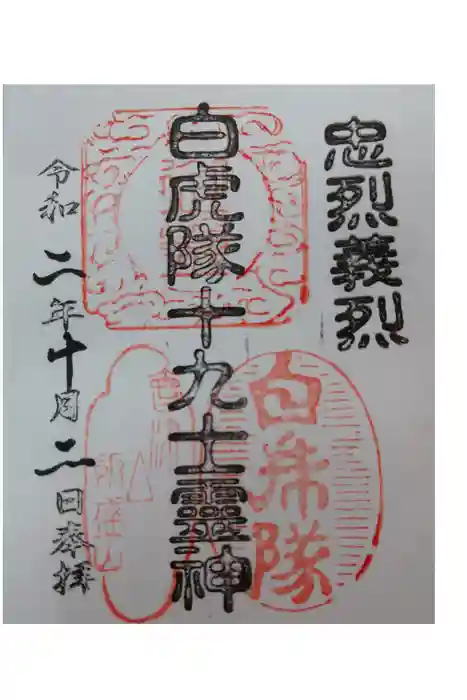 忠烈義烈
白虎隊十九士靈神
白虎隊
令和二年十月二日奉拝